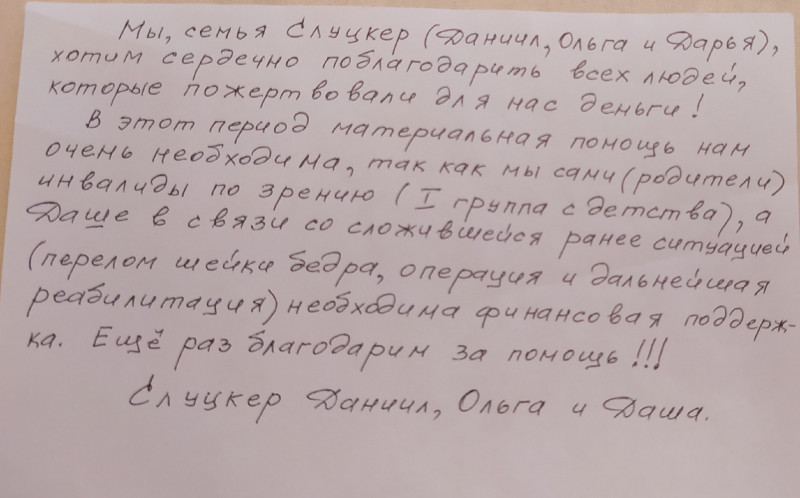 Мы, семья Слуцкер (Даниил, Ольга и Дарья),
хотим сердечно поблагодарить всех людей,
которые пожертвовали для нас деньги!
В этот период материальная помощь нам
очень необходима, так как мы сами (родители)
инвалиды по зрению (I группа с детства), а
Даше в связи со сложившейся ранее ситуацией
(перелом шейки бедра, операция и дальнейшая
реабилитация) необходима финансовая поддерж-
ка. Ещё раз благодарим за помощь!!!
Слуцкер Даниил, Ольга и Даша.